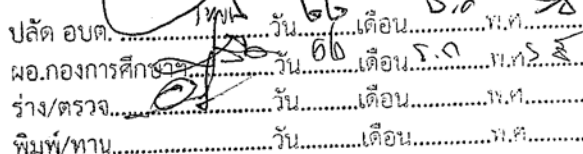 ปลัด อบต. วัน ๒๖ เดือน ธ.ค พ.ศ.
ผอ.กองการศึกษาฯ วัน ๒๖ เดือน ธ.ค พ.ศ.
ร่าง/ตรวจ วัน เดือน พ.ศ.
พิมพ์/ทาน วัน เดือน พ.ศ.